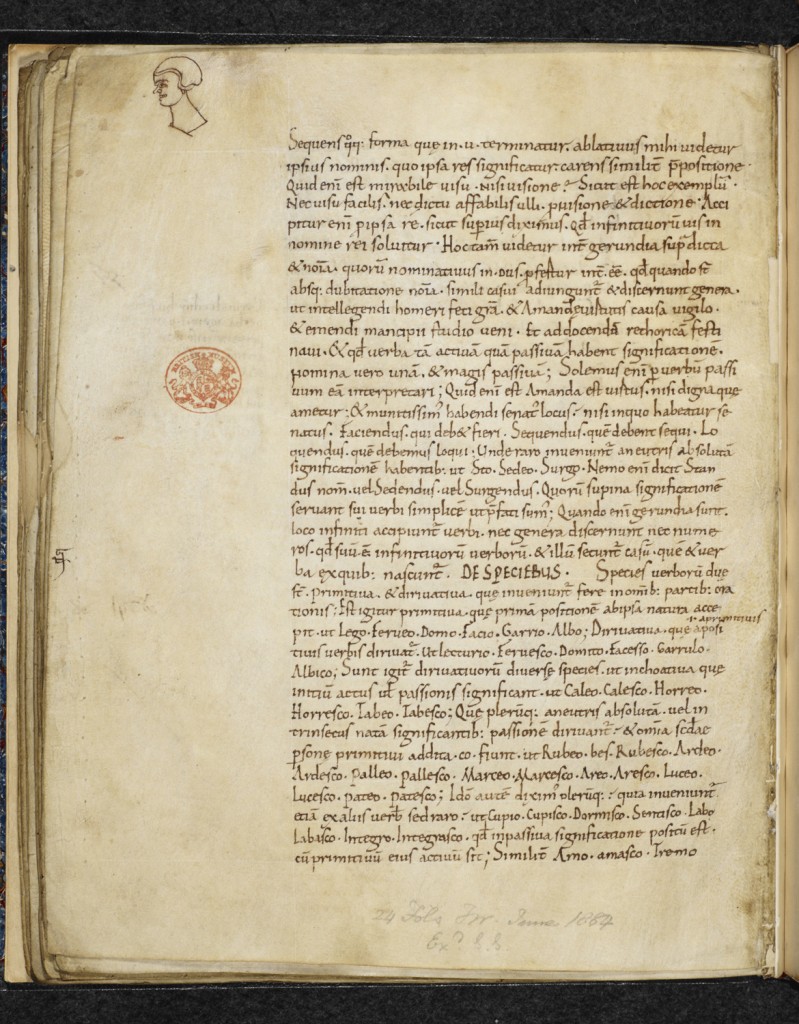 Sequens q̄q; forma que in .u. terminatur. ablatiuus mihi uidetur
ipsius nominis. quo ipsa res significatur. carens similit̄ p̄positione.
Quid eni est mirabile uisu. Nisi uisione? Sicut est hoc exemplū.
Nec uisu facilis. nec dictu affabilis ulli. p uisione & dictione. Acci
pitur eni p ipsa re. sicut superius diximus. qđ infinitiuorū uis in
nomine rei soluitur. Hoc tam̄ uidetur int̄ gerundia sup̄ dicta
& noīa. quorū nominatiuus in .dus. p̄fertur int̄ēē. qđ quando st̄
absq; dubitatione noīa. simili casui adiungunt̄ & discernunt genera.
ut intellegendi homeri feci grā. & Amandę uirtutis causa uigilo.
& emendi mancipii studio ueni. Et ad docendā rethoricā festi
naui. & qđ uerba tā actiuā quā passiuā habent significationē.
Nomina uero unā. & magis passiuā; Solemus eni p uerbū passi
uum eā interpretari; Quid eni est Amanda est uirtus. nisi digna que
ametur: & munitissim' habendi senat' locus. nisi in quo habeatur se
natus. Faciendus. qui deb& fieri. Sequendus. quē debent sequi. Lo
quendus. quē debemus loqui; Unde raro inueniunt̄ a neutris absolutā
significationē habentib; ut Sto. Sedeo. Surgo. Nemo eni dicit Stan
dus nom̄. uel Sedendus. uel Surgendus. Quorū supina significationē
seruant sui uerbi simplicē ut p̄fati sum'; Quando eni gerundia sunt.
loco infiniti accipiunt̄ uerbi. nec genera discernunt nec nume
ros. qđ suū ē infinitiuorū uerborū. & illū secunt̄ casū. que & uer
ba ex quib; nascunt̄. DE SPECIEBUS. Species uerborū due
st̄. primitiua. & diriuatiua. que inueniunt̄ fere in omīb; partib; ora
tionis; Est igitur primitiua. que primā positionē ab ipsa natura acce
.i. a primitiuis
pit. ut Lego. Ferueo. Domo. Facio. Garrio. Albo; Diriuatiua. que a posi
tiuis uerbis diriuat̄. ut Lecturio. Feruesco. Domito. Facesso. Garrulo.
Albico; Sunt igit̄ diriuatiuorū diuerse species. ut inchoatiua que
initiū actus uł passionis significant. ut Caleo. Calesco. Horreo.
Horresco. Tabeo. Tabesco; Que plerūq; a neutris absolutā. uel in
trinsecus natā significantib; passionē diriuant̄. & om̄ia sc̄dae
p̄sone primitiui addita .co. fiunt. ut Rubeo. bes. Rubesco. Ardeo.
Ardesco. Palleo. Pallesco. Marceo. Marcesco. Areo. Aresco. Luceo.
Lucesco. Pateo. Patesco; Idō autē dixim' plerūq;. quia inueniunt̄
etiā ex aliis uerb̄ sed raro. ut Cupio. Cupisco. Dormisco. Sentisco. Labo
Labasco. Integro. Integrasco. qđ in passiua significatione positū est.
cū primitiuū eius actiuū sit; Similit̄ Amo. amasco. Tremo
24 Fols June 1884